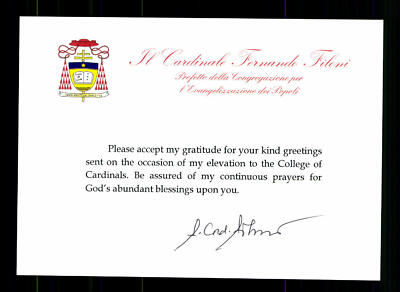 Il Cardinale Fernando Filoni
Prefetto della Congregazione per
l'Evangelizzazione dei Popoli
Please accept my gratitude for your kind greetings
sent on the occasion of my elevation to the College of
Cardinals. Be assured of my continuous prayers for
God's abundant blessings upon you.